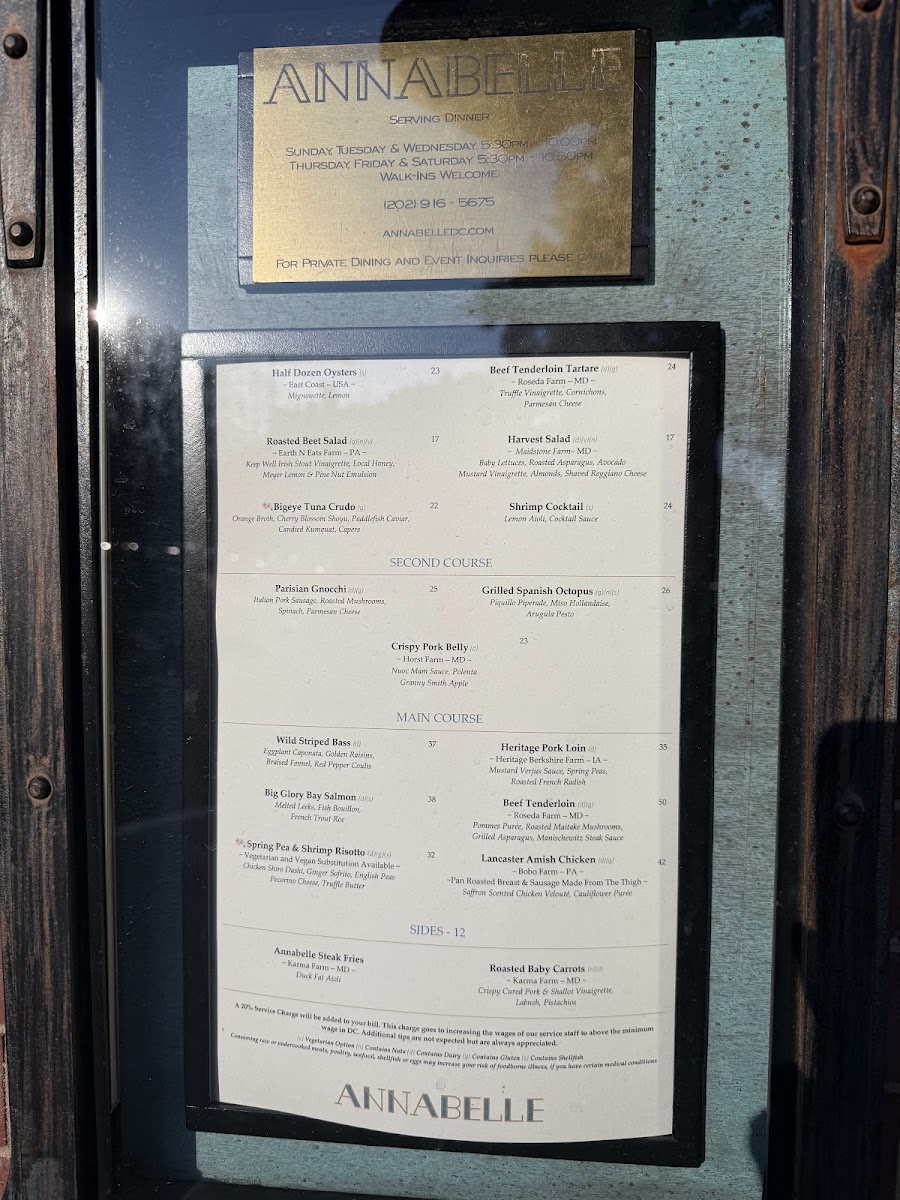 ANNABELLE
SERVING DINNER
SUNDAY, TUESDAY & WEDNESDAY 5:30PM - 10:00PM
THURSDAY, FRIDAY & SATURDAY 5:30PM - 10:30PM
WALK-INS WELCOME
(202) 916 - 5675
ANNABELLEDC.COM
FOR PRIVATE DINING AND EVENT INQUIRIES PLEASE CALL
Half Dozen Oysters (s) 23
~ East Coast – USA ~
Mignonette, Lemon
Beef Tenderloin Tartare (d)(g) 24
~ Roseda Farm – MD ~
Truffle Vinaigrette, Cornichons,
Parmesan Cheese
Roasted Beet Salad (g)(n)(v) 17
~ Earth N Eats Farm – PA ~
Keep Well Irish Stout Vinaigrette, Local Honey,
Meyer Lemon & Pine Nut Emulsion
Harvest Salad (d)(v)(n) 17
~ Maidstone Farm– MD ~
Baby Lettuces, Roasted Asparagus, Avocado
Mustard Vinaigrette, Almonds, Shaved Reggiano Cheese
Bigeye Tuna Crudo (g) 22
Orange Broth, Cherry Blossom Shoyu, Paddlefish Caviar,
Candied Kumquat, Capers
Shrimp Cocktail (s) 24
Lemon Aioli, Cocktail Sauce
SECOND COURSE
Parisian Gnocchi (d)(g) 25
Italian Pork Sausage, Roasted Mushrooms,
Spinach, Parmesan Cheese
Grilled Spanish Octopus (g)(n)(s) 26
Piquillo Piperade, Miso Hollandaise,
Arugula Pesto
Crispy Pork Belly 23
~ Horst Farm – MD ~
Nuoc Mam Sauce, Polenta
Granny Smith Apple
MAIN COURSE
Wild Striped Bass (d) 37
Eggplant Caponata, Golden Raisins,
Braised Fennel, Red Pepper Coulis
Heritage Pork Loin (d) 35
~ Heritage Berkshire Farm – IA ~
Mustard Verjus Sauce, Spring Peas,
Roasted French Radish
Big Glory Bay Salmon (d)(s) 38
Melted Leeks, Fish Bouillon,
French Trout Roe
Beef Tenderloin (d)(g) 50
~ Roseda Farm – MD ~
Pommes Purée, Roasted Maitake Mushrooms,
Grilled Asparagus, Manischewitz Steak Sauce
Spring Pea & Shrimp Risotto (d)(g)(s) 32
~ Vegetarian and Vegan Substitution Available ~
Chicken Shiro Dashi, Ginger Sofrito, English Peas
Pecorino Cheese, Truffle Butter
Lancaster Amish Chicken (d)(g) 42
~ Bobo Farm – PA ~
~Pan Roasted Breast & Sausage Made From The Thigh ~
Saffron Scented Chicken Velouté, Cauliflower Purée
SIDES - 12
Annabelle Steak Fries
~ Karma Farm – MD ~
Duck Fat Aioli
Roasted Baby Carrots (n)(d)
~ Karma Farm – MD ~
Crispy Cured Pork & Shallot Vinaigrette,
Labneh, Pistachios
A 20% Service Charge will be added to your bill. This charge goes to increasing the wages of our service staff to above the minimum
wage in DC. Additional tips are not expected but are always appreciated.
(v) Vegetarian Option (n) Contains Nuts (d) Contains Dairy (g) Contains Gluten (s) Contains Shellfish
Consuming raw or undercooked meats, poultry, seafood, shellfish or eggs may increase your risk of foodborne illness, if you have certain medical conditions
ANNABELLE